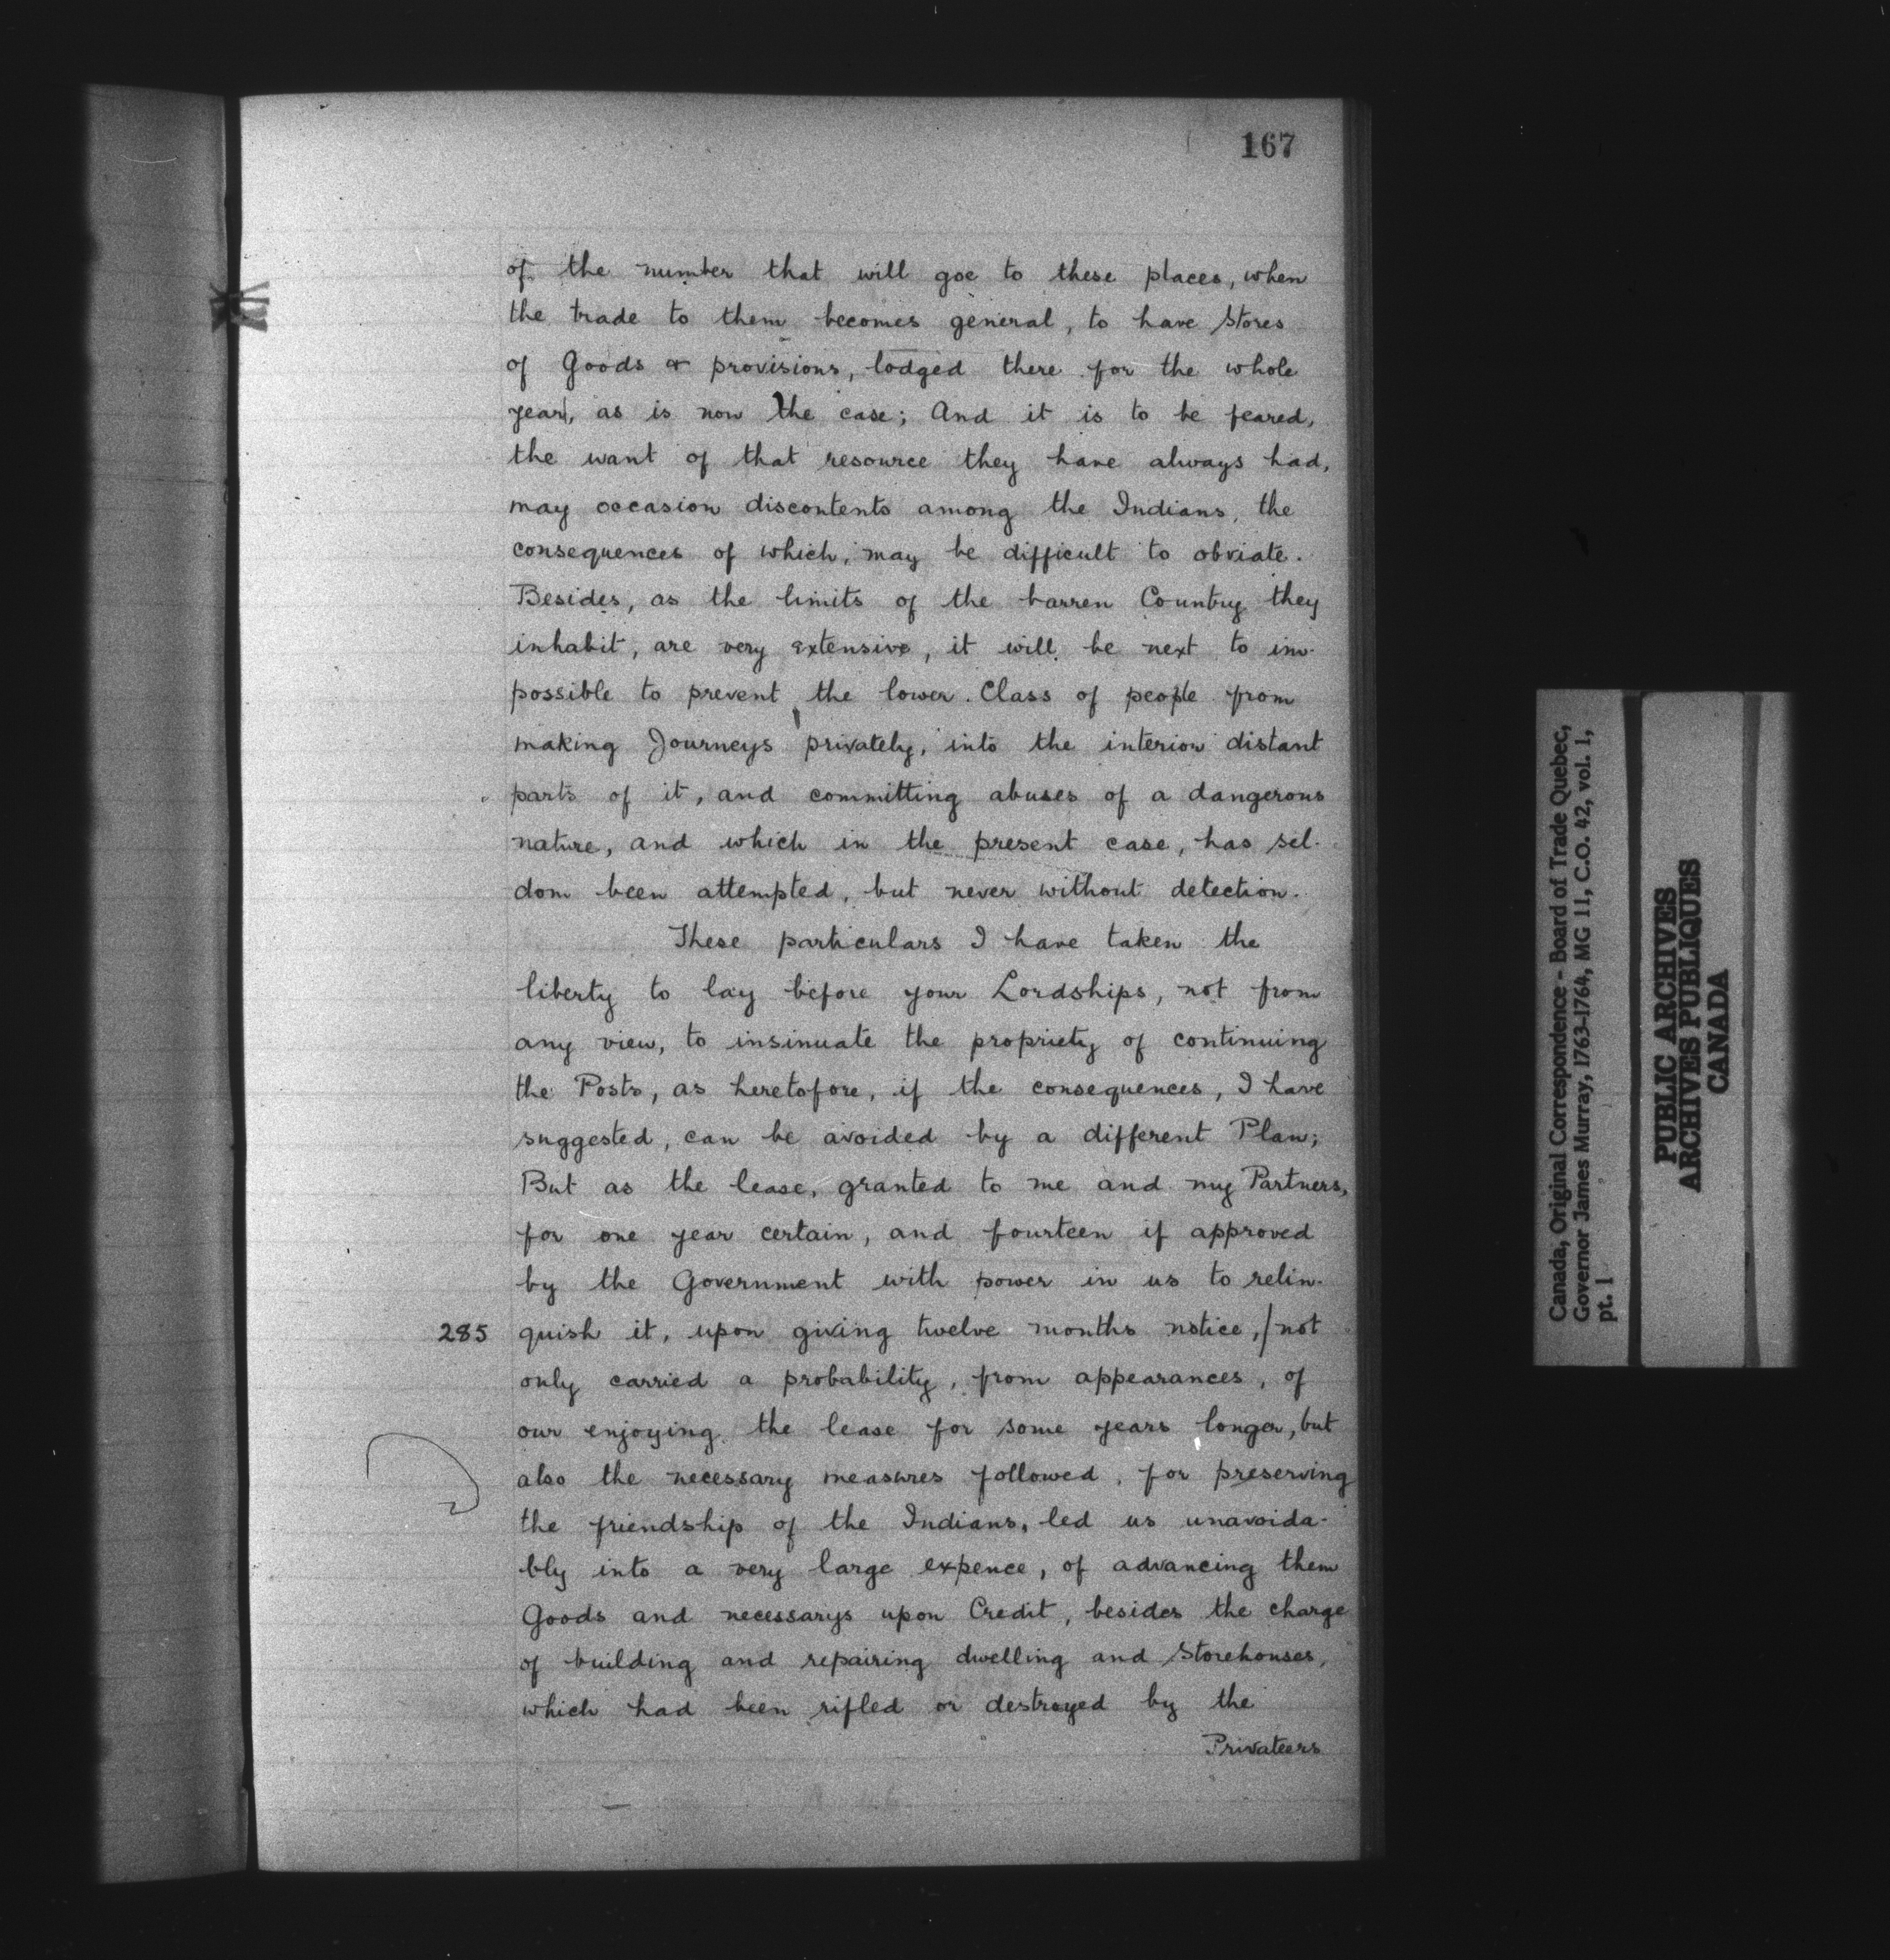 167
of the number that will goe to these places, when
the trade to them becomes general, to have Stores
of Goods & provisions, lodged there for the whole
year, as is now the case; And it is to be feared,
the want of that resource they have always had,
may occasion discontents among the Indians, the
consequences of which, may be difficult to obviate.
Besides, as the limits of the barren Country they
inhabit, are very extensive, it will be next to im-
possible to prevent the lower Class of people from
making Journeys privately, into the interior distant
parts of it, and committing abuses of a dangerous
nature, and which in the present case, has sel-
dom been attempted, but never without detection.
These particulars I have taken the
liberty to lay before your Lordships, not from
any view, to insinuate the propriety of continuing
the Posts, as heretofore, if the consequences, I have
suggested, can be avoided by a different Plan;
But as the lease, granted to me and my Partners,
for one year certain, and fourteen if approved
by the Government with power in us to relin-
285 quish it, upon giving twelve months notice,/not
only carried a probability, from appearances, of
our enjoying the lease for some years longer, but
also the necessary measures followed, for preserving
the friendship of the Indians, led us unavoida-
bly into a very large expence, of advancing them
Goods and necessarys upon Credit, besides the charge
of building and repairing dwelling and Storehouses,
which had been rifled or destroyed by the
Privateers
Canada, Original Correspondence - Board of Trade Quebec,
Governor James Murray, 1763-1764, MG 11, C.O. 42, vol. 1,
pt. 1
PUBLIC ARCHIVES
ARCHIVES PUBLIQUES
CANADA